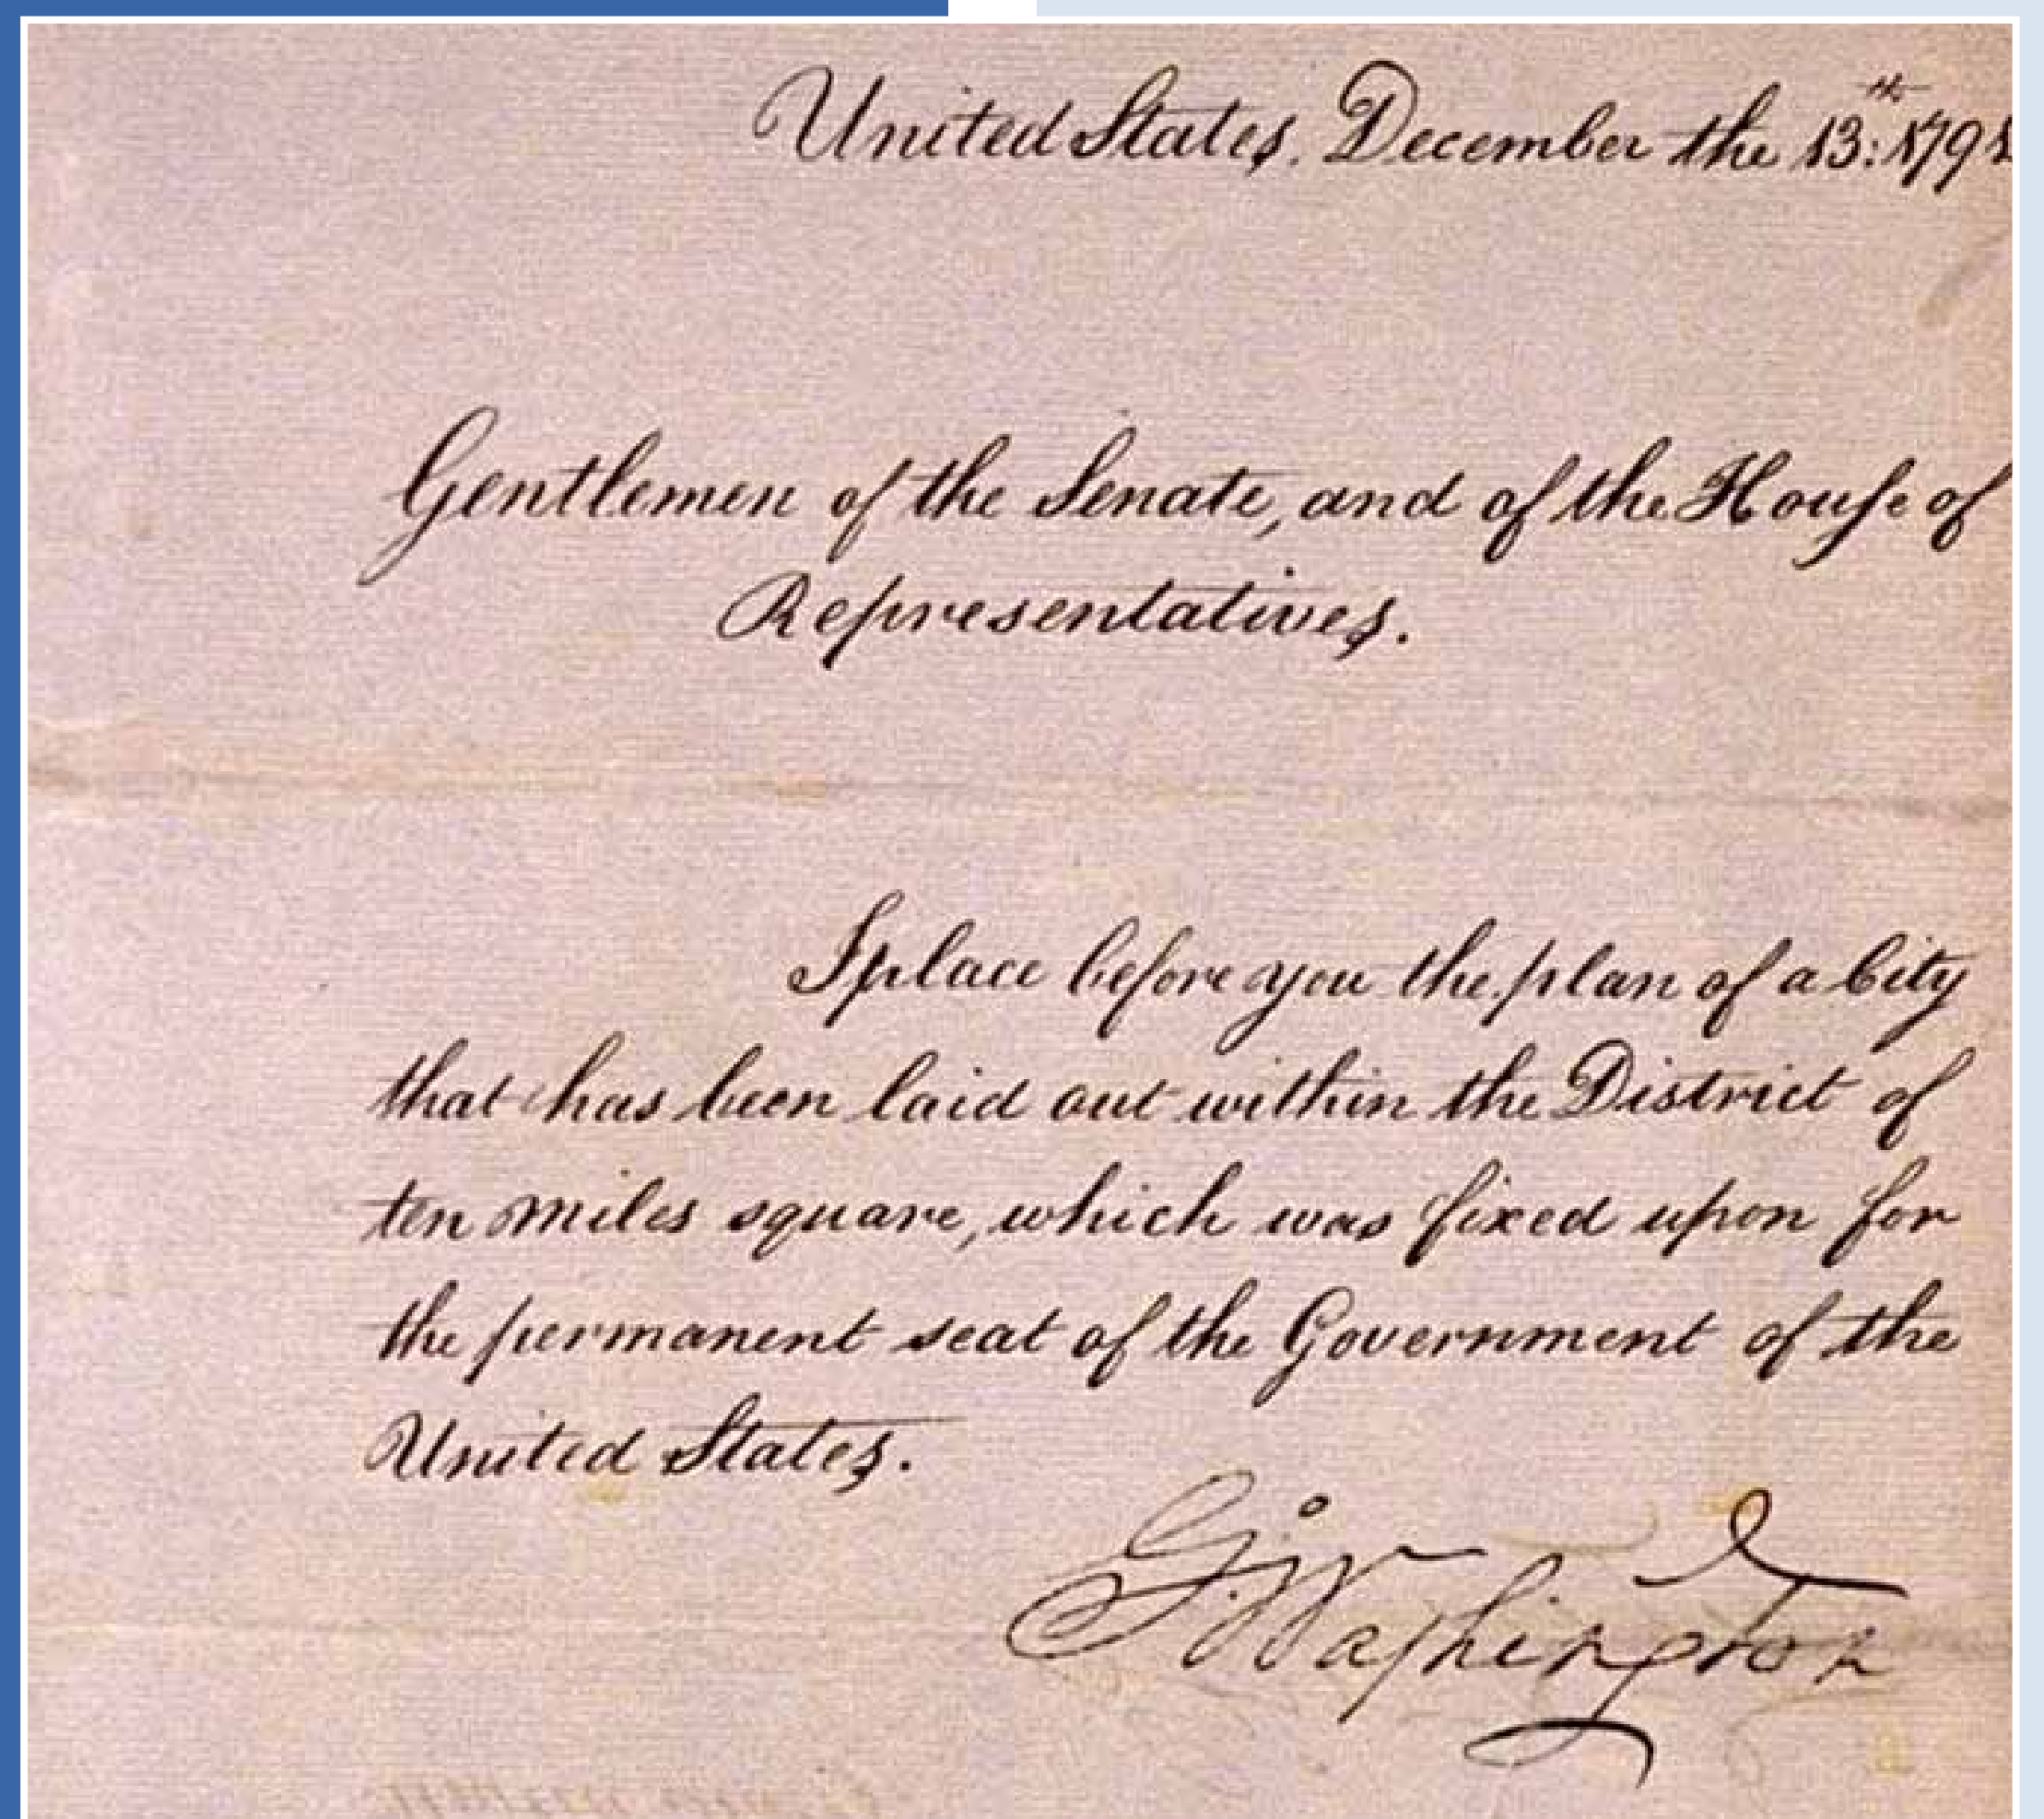 United States, December the 13:th 1791
Gentlemen of the Senate, and of the House of
Representatives.
I place before you the plan of a City
that has been laid out within the District of
ten miles square, which was fixed upon for
the permanent seat of the Government of the
United States.
Go: Washington